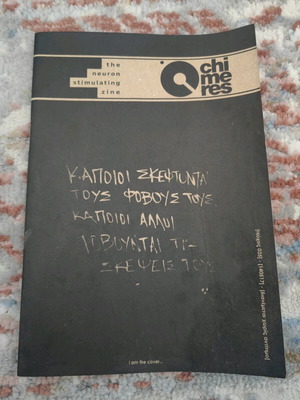 the
neuron
stimulating
zine
chi
me
res
ΚΑΠΟΙΟΙ ΣΚΕΦΤΟΝΤΑΙ
ΤΟΥΣ ΦΟΒΟΥΣ ΤΟΥΣ,
ΚΑΠΟΙΟΙ ΑΛΛΟΙ
ΦΟΒΟΥΝΤΑΙ ΤΙΣ
ΣΚΕΨΕΙΣ ΤΟΥΣ
I am the cover...